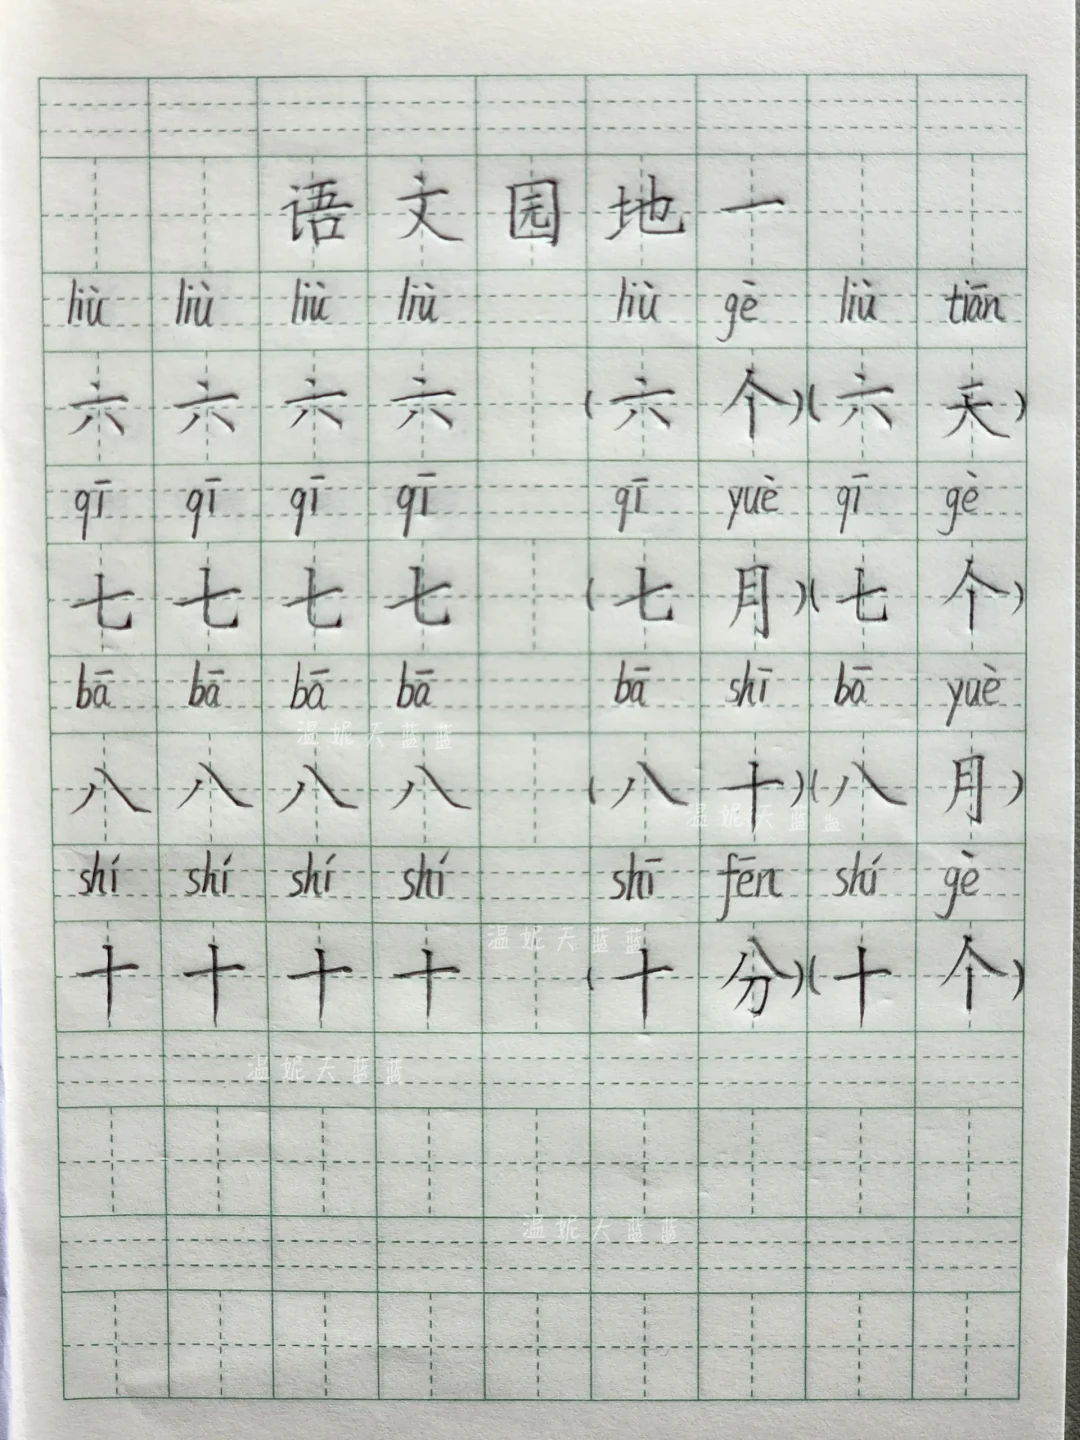 语文园地一
liù liù liù liù liù gè liù tiān
六 六 六 六 (六 个)(六 天)
qī qī qī qī qī yuè qī gè
七 七 七 七 (七 月)(七 个)
bā bā bā bā bā shī bā yuè
八 八 八 八 (八 十)(八 月)
温妮天蓝蓝
温妮天蓝蓝
shí shí shí shí shī fēn shí gè
十 十 十 十 (十 分)(十 个)
温妮天蓝蓝
温妮天蓝蓝
温妮天蓝蓝